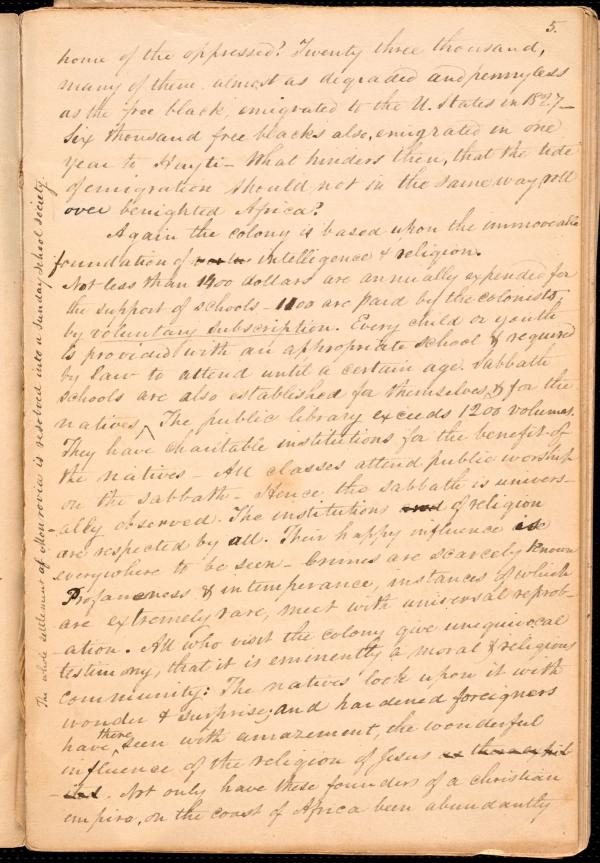 5.
home of the oppressed? Twenty three thousand,
many of them almost as degraded and pennyless
as the free black, emigrated to the U. States in 1827–
Six thousand free blacks also, emigrated in one
year to Hayti – What hinders then, that the tide
of emigration should not in the same way roll
over benighted Africa?
Again the colony is based upon the immoveable
foundation of intelligence & religion.
Not less than 1400 dollars are annually expended for
the support of schools – 1100 are paid by the colonists,
by voluntary subscription. Every child or youth
is provided with an appropriate school & required
by law to attend until a certain age. Sabbath
schools are also established for themselves, & for the
natives ^ The public library exceeds 1200 volumes.
They have charitable institutions for the benefit of
the natives – All classes attend public worship
on the sabbath – Hence the sabbath is univers-
ally observed. The institutions of religion
are respected by all. Their happy influence is
everywhere to be seen – Crimes are scarcely known
Profaneness & intemperance, instances of which
are extremely rare, meet with universal reprob-
ation. All who visit the colony give unequivocal
testimony, that it is eminently a moral & religious
community: The natives look upon it with
wonder & surprise; and hardened foreigners
have ^there seen with amazement, the wonderful
influence of the religion of Jesus
Not only have these founders of a christian
empire, on the coast of Africa been abundantly
The whole settlement of Monrovia is resolved into a Sunday school society.